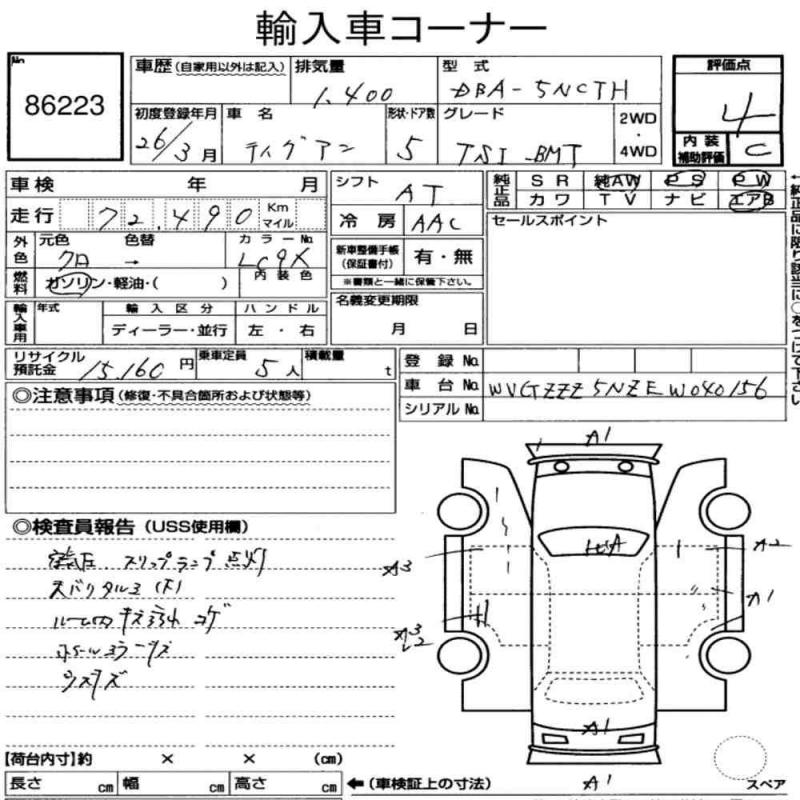 輸入車コーナー
No 86223
車歴 (自家用以外は記入) 排気量 1.400 型式 DBA-5NCTH 評価点 4
初度登録年月 26/3月 車名 ティグアン 形状・ドア数 5 グレード TSI BMT 2WD・4WD 内装補助評価 C
車検 年 月 シフト AT 純正品 SR 純AW PS PW
カワ TV ナビ エアB
走行 72.490 Km マイル 冷房 AAC セールスポイント
外色 元色 クロ 色替 → カラーNo. LC9X 内装色
新車整備手帳(保証書付) 有・無
※書類と一緒に保管下さい。
燃料 ガソリン・軽油・( )
名義変更期限 月 日
輸入車用 年式 輸入区分 ディーラー・並行 ハンドル 左・右
リサイクル預託金 15.160円 乗車定員 5人 積載量 t
登録No.
車台No. WVGZZZ5NZEW040156
シリアルNo.
←純正品に限り該当に○をつけて下さい
◎注意事項 (修復・不具合箇所および状態等)
◎検査員報告 (USS使用欄)
空気圧、スリップランプ点灯
ルーム内キズ コゲ
A1
A3
A2
A1
A1
A1
【荷台内寸】約 × × (cm)
長さ cm 幅 cm 高さ cm ←(車検証上の寸法)
スペア